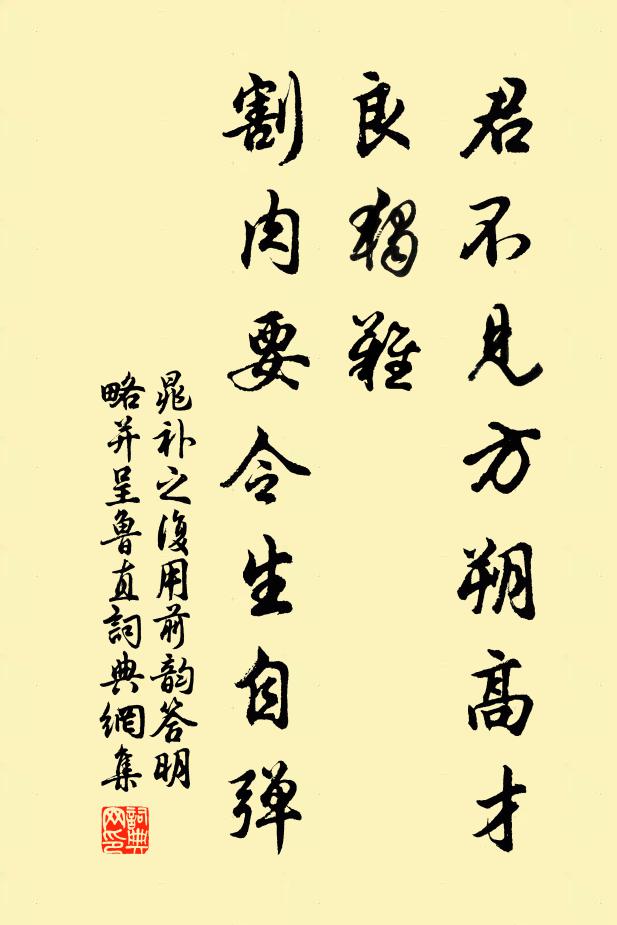 君不見方朔高才
良獨難
割肉要令生自彈
晁补之復用前韵答明
略并呈魯直詞典網集
詞典
网印